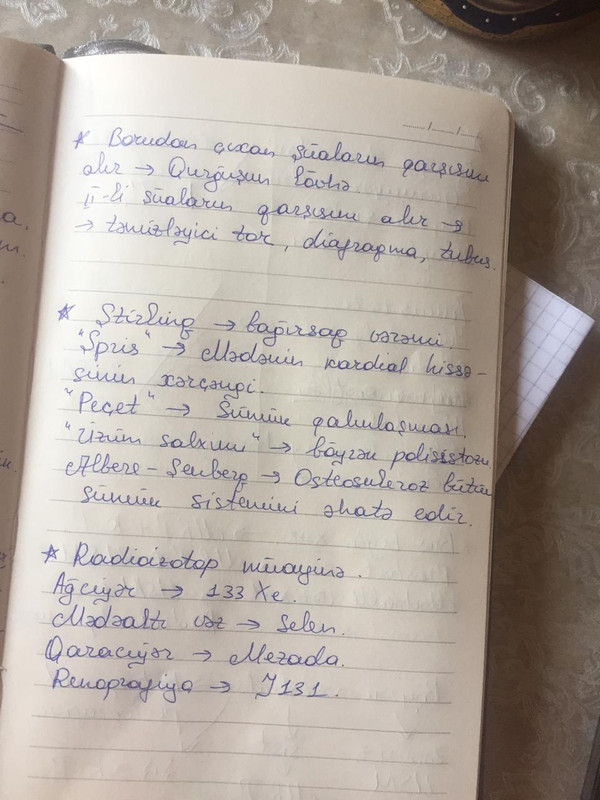 * Borudan çıxan şüaların qarşısını
alır → Qurğuşun lövhə
II-li şüaların qarşısını alır →
→ təmizləyici tor, diafraqma, tubus.
* Stirling → bağırsaq vərəmi.
"Şpris" → Mədənin kardial hissə-
sinin xərçəngi.
"Peçet" → Sümük qalınlaşması.
"Üzüm salxımı" → böyrək polisistozu
Albers-Şenberg → Osteoskleroz bütün
sümük sistemini əhatə edir.
* Radioizotop müayinə.
Ağciyər → 133 Xe.
Mədəaltı vəz → Selen.
Qaraciyər → Mezada.
Renoqrafiya → J 131.